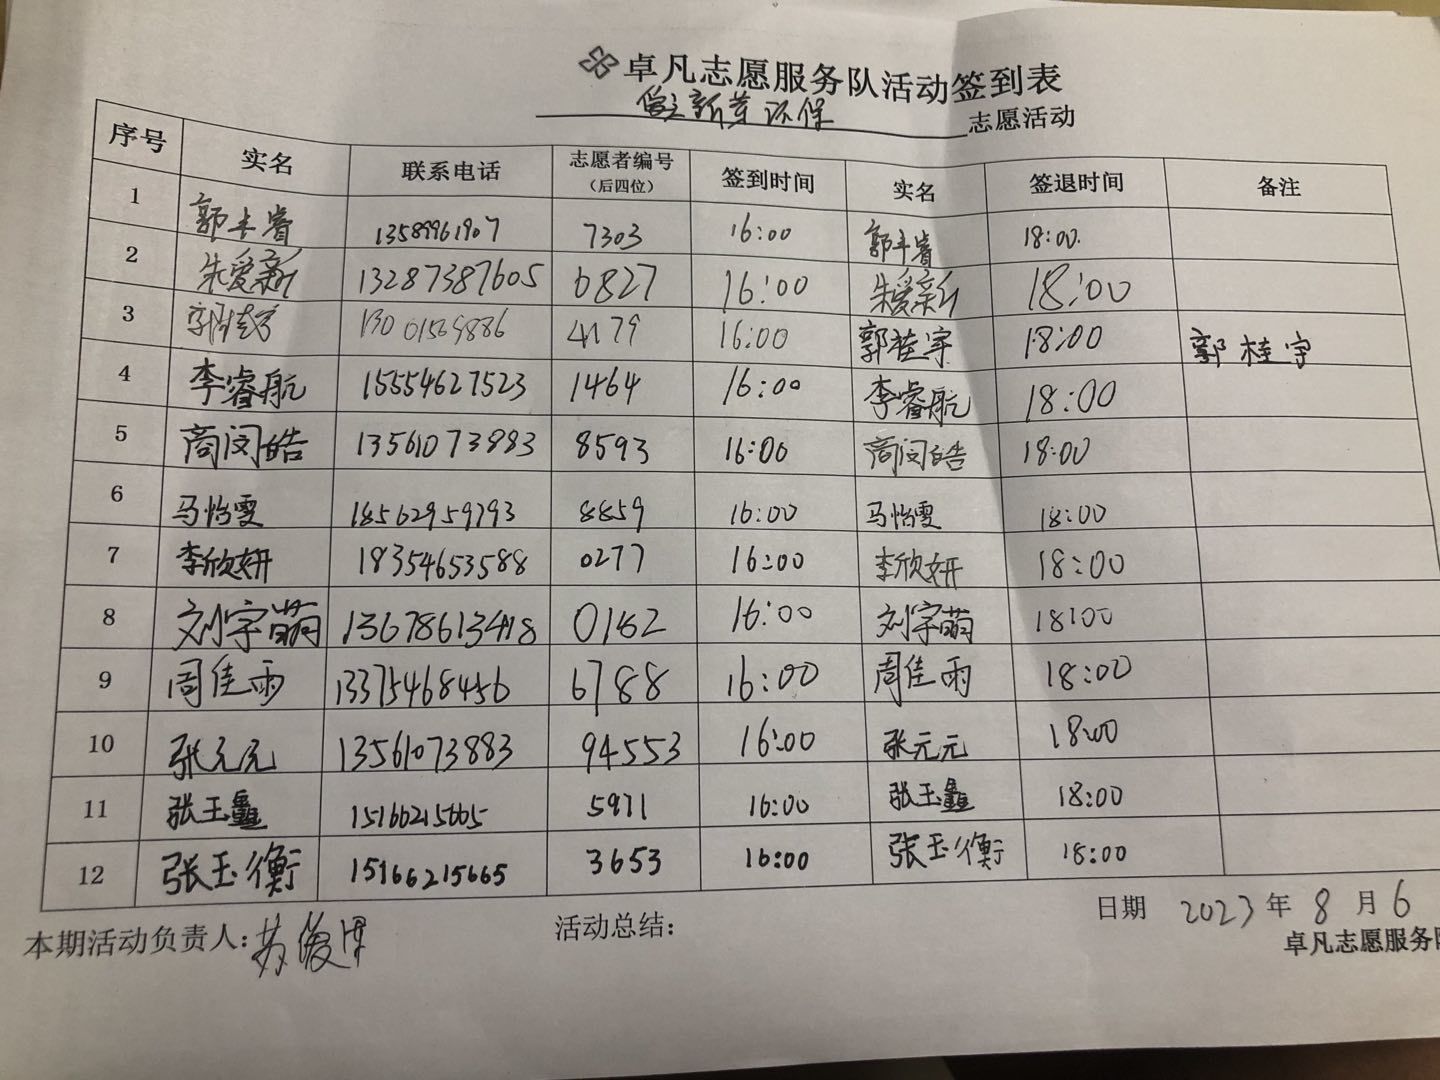 卓凡志愿服务队活动签到表
新芽环保 志愿活动
序号 实名 联系电话 志愿者编号（后四位） 签到时间 实名 签退时间 备注
1 郭丰睿 13589961907 7303 16:00 郭丰睿 18:00
2 朱爱新 13287387605 6827 16:00 朱爱新 18:00
3 4179 16:00 郭桂宇 18:00 郭桂宇
4 李睿航 15554627523 1464 16:00 李睿航 18:00
5 商闵皓 13561073883 8593 16:00 商闵皓 18:00
6 马怡雯 18562959793 8859 16:00 马怡雯 18:00
7 李欣妍 18354653588 0277 16:00 李欣妍 18:00
8 刘宇萌 13678613418 0182 16:00 刘宇萌 18:00
9 周佳雨 13375468456 6788 16:00 周佳雨 18:00
10 张元元 13561073883 94553 16:00 张元元 18:00
11 张玉鑫 15166215665 5971 16:00 张玉鑫 18:00
12 张玉衡 15166215665 3653 16:00 张玉衡 18:00
日期 2023年8月6
本期活动负责人: 苏俊 活动总结:
卓凡志愿服务队